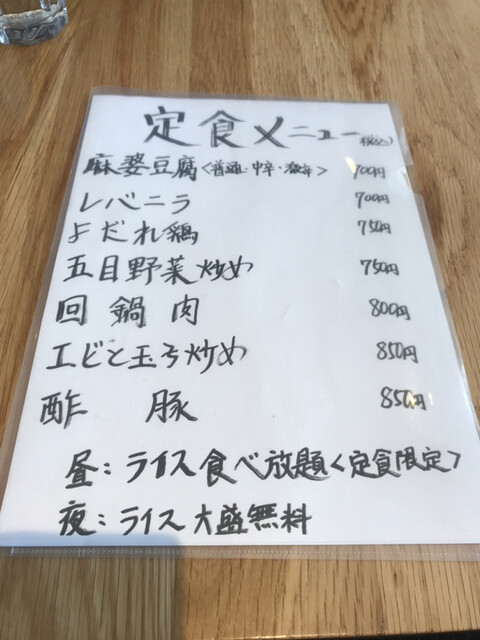 定食メニュー(税込)
麻婆豆腐<普通・中辛・激辛> 700円
レバニラ 700円
よだれ鶏 750円
五目野菜炒め 750円
回鍋肉 800円
エビと玉子炒め 850円
酢豚 850円
昼:ライス食べ放題<定食限定>
夜:ライス大盛無料